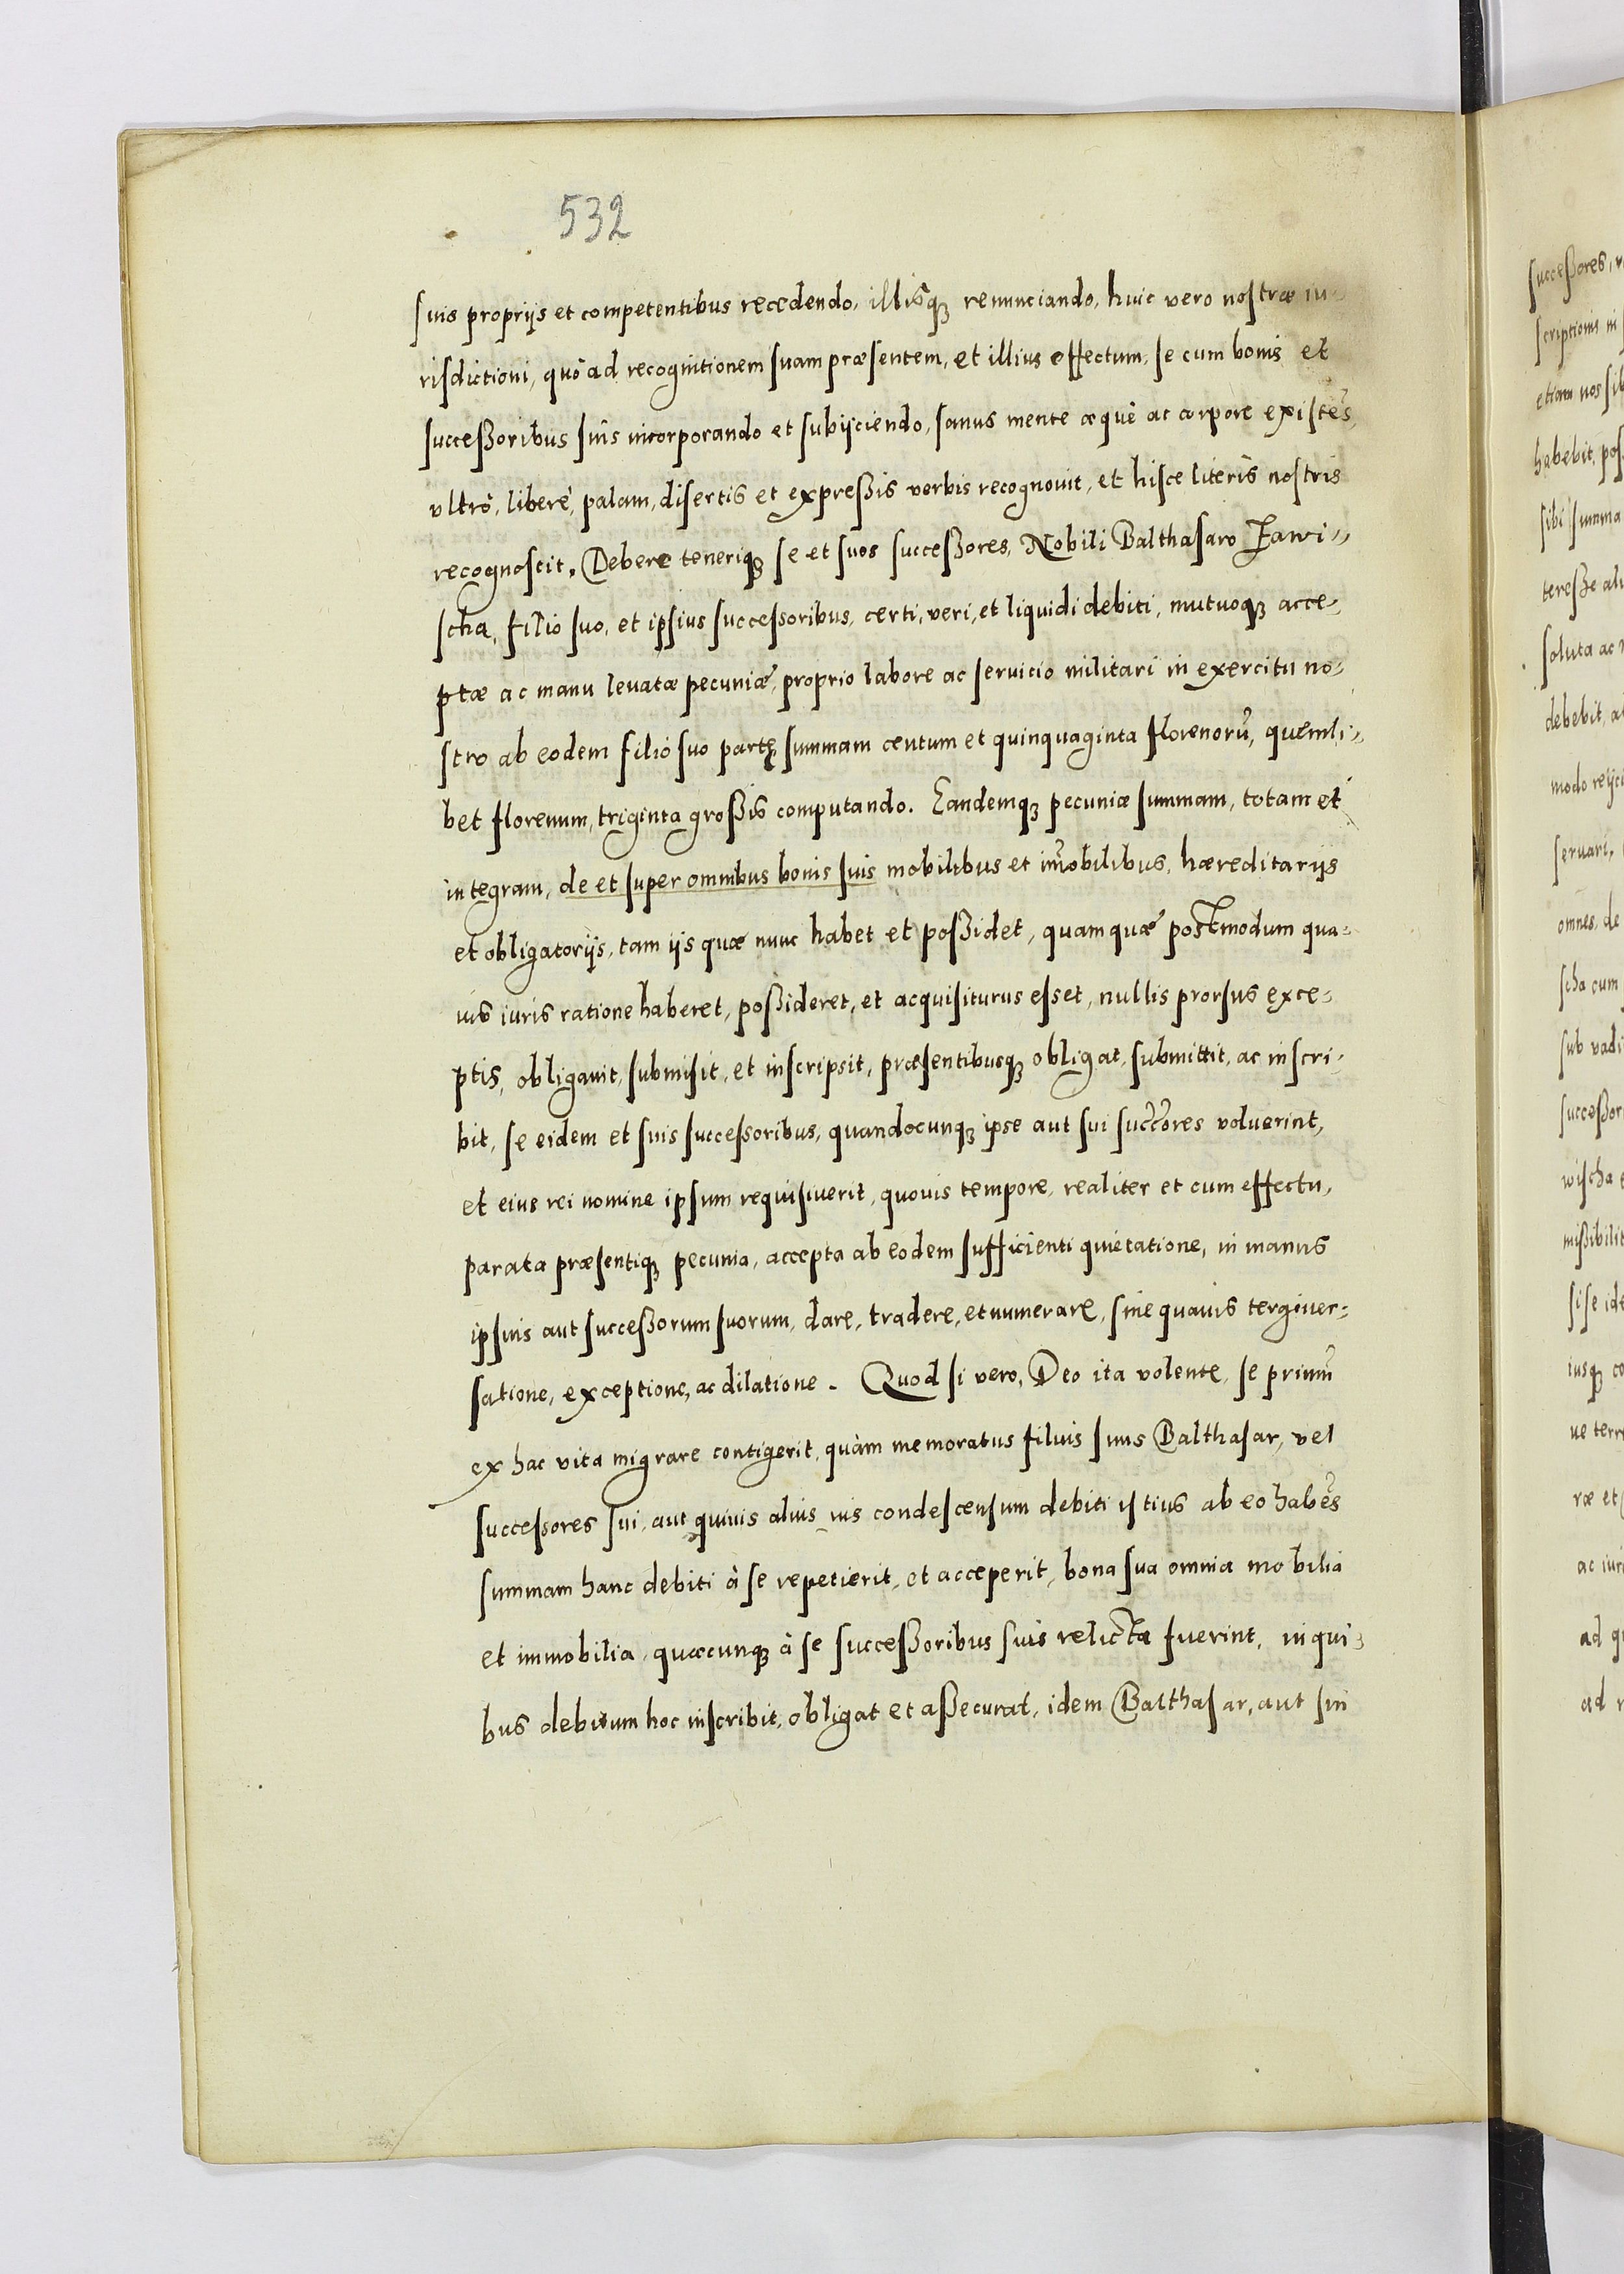 532
suis proprijs et competentibus recedendo, illisq́ꝫ renunciando, huic vero nostræ iu-
risdictioni, quô ad recognitionem suam præsentem, et illius effectum, se cum bonis et
succeßoribus suîs incorporando et subijciendo, sanus mente æquè ac corpore existẽs,
vltrò, liberè, palam, disertis et expreßis verbis recognouit, et hisce literîs nostris
recognoscit, Debere teneriqꝫ se et suos succeßores, Nobili Balthasaro Zawi-
scha, filio suo, et ipsius successoribus, certi, veri, et liquidi debiti, mutuoqꝫ acce-
ptæ ac manu leuatæ pecuniæ, proprio labore ac seruicio militari in exercitu no-
stro ab eodem filio suo partę summam centum et quinquaginta florenorũ, quemli-
bet florenum, triginta großis computando. Eandemqꝫ pecuniæ summam, totam et
integram, de et super omnibus bonis suis mobilibus et im̃obilibus, hæreditarijs
et obligatorijs, tam ijs quæ nunc habet et poßidet, quam quæ postmodum qua-
uis iuris ratione haberet, poßideret, et acquisiturus esset, nullis prorsus exce-
ptis, obligauit, submisit, et inscripsit, præsentibusqꝫ obligat, submittit, ac inscri-
bit, se eidem et suis successoribus, quandocunqꝫ ipse aut sui succ̃ores voluerint,
et eius rei nomine ipsum requisiuerit, quouis tempore, realiter et cum effectu,
parata præsentiqꝫ pecunia, accepta ab eodem sufficienti quietatione, in manus
ipsius aut succeßorum suorum, dare, tradere, et numerare, sine quauis tergiuer-
satione, exceptione, ac dilatione. Quod si vero, Deo ita volente, se primũ
ex hac vita migrare contigerit, quàm memoratus filius suus Balthasar, vel
successores sui, aut quiuis alius ius condescensum debiti istius ab eo habẽs
summam hanc debiti à se repetierit, et acceperit, bona sua omnia mobilia
et immobilia, quæcunqꝫ à se succeßoribus suis relicta fuerint, in qui-
bus debitum hoc inscribit, obligat et aßecurat, idem Balthasar, aut sui
succeßores,
scriptionis in
etiam nos
habebit,
sibi summa
tereße
soluta ac
debebit,
modo
seruari,
omnes, de
scha cum
sub
wischa
si se
ræ et
ac
ad
ad